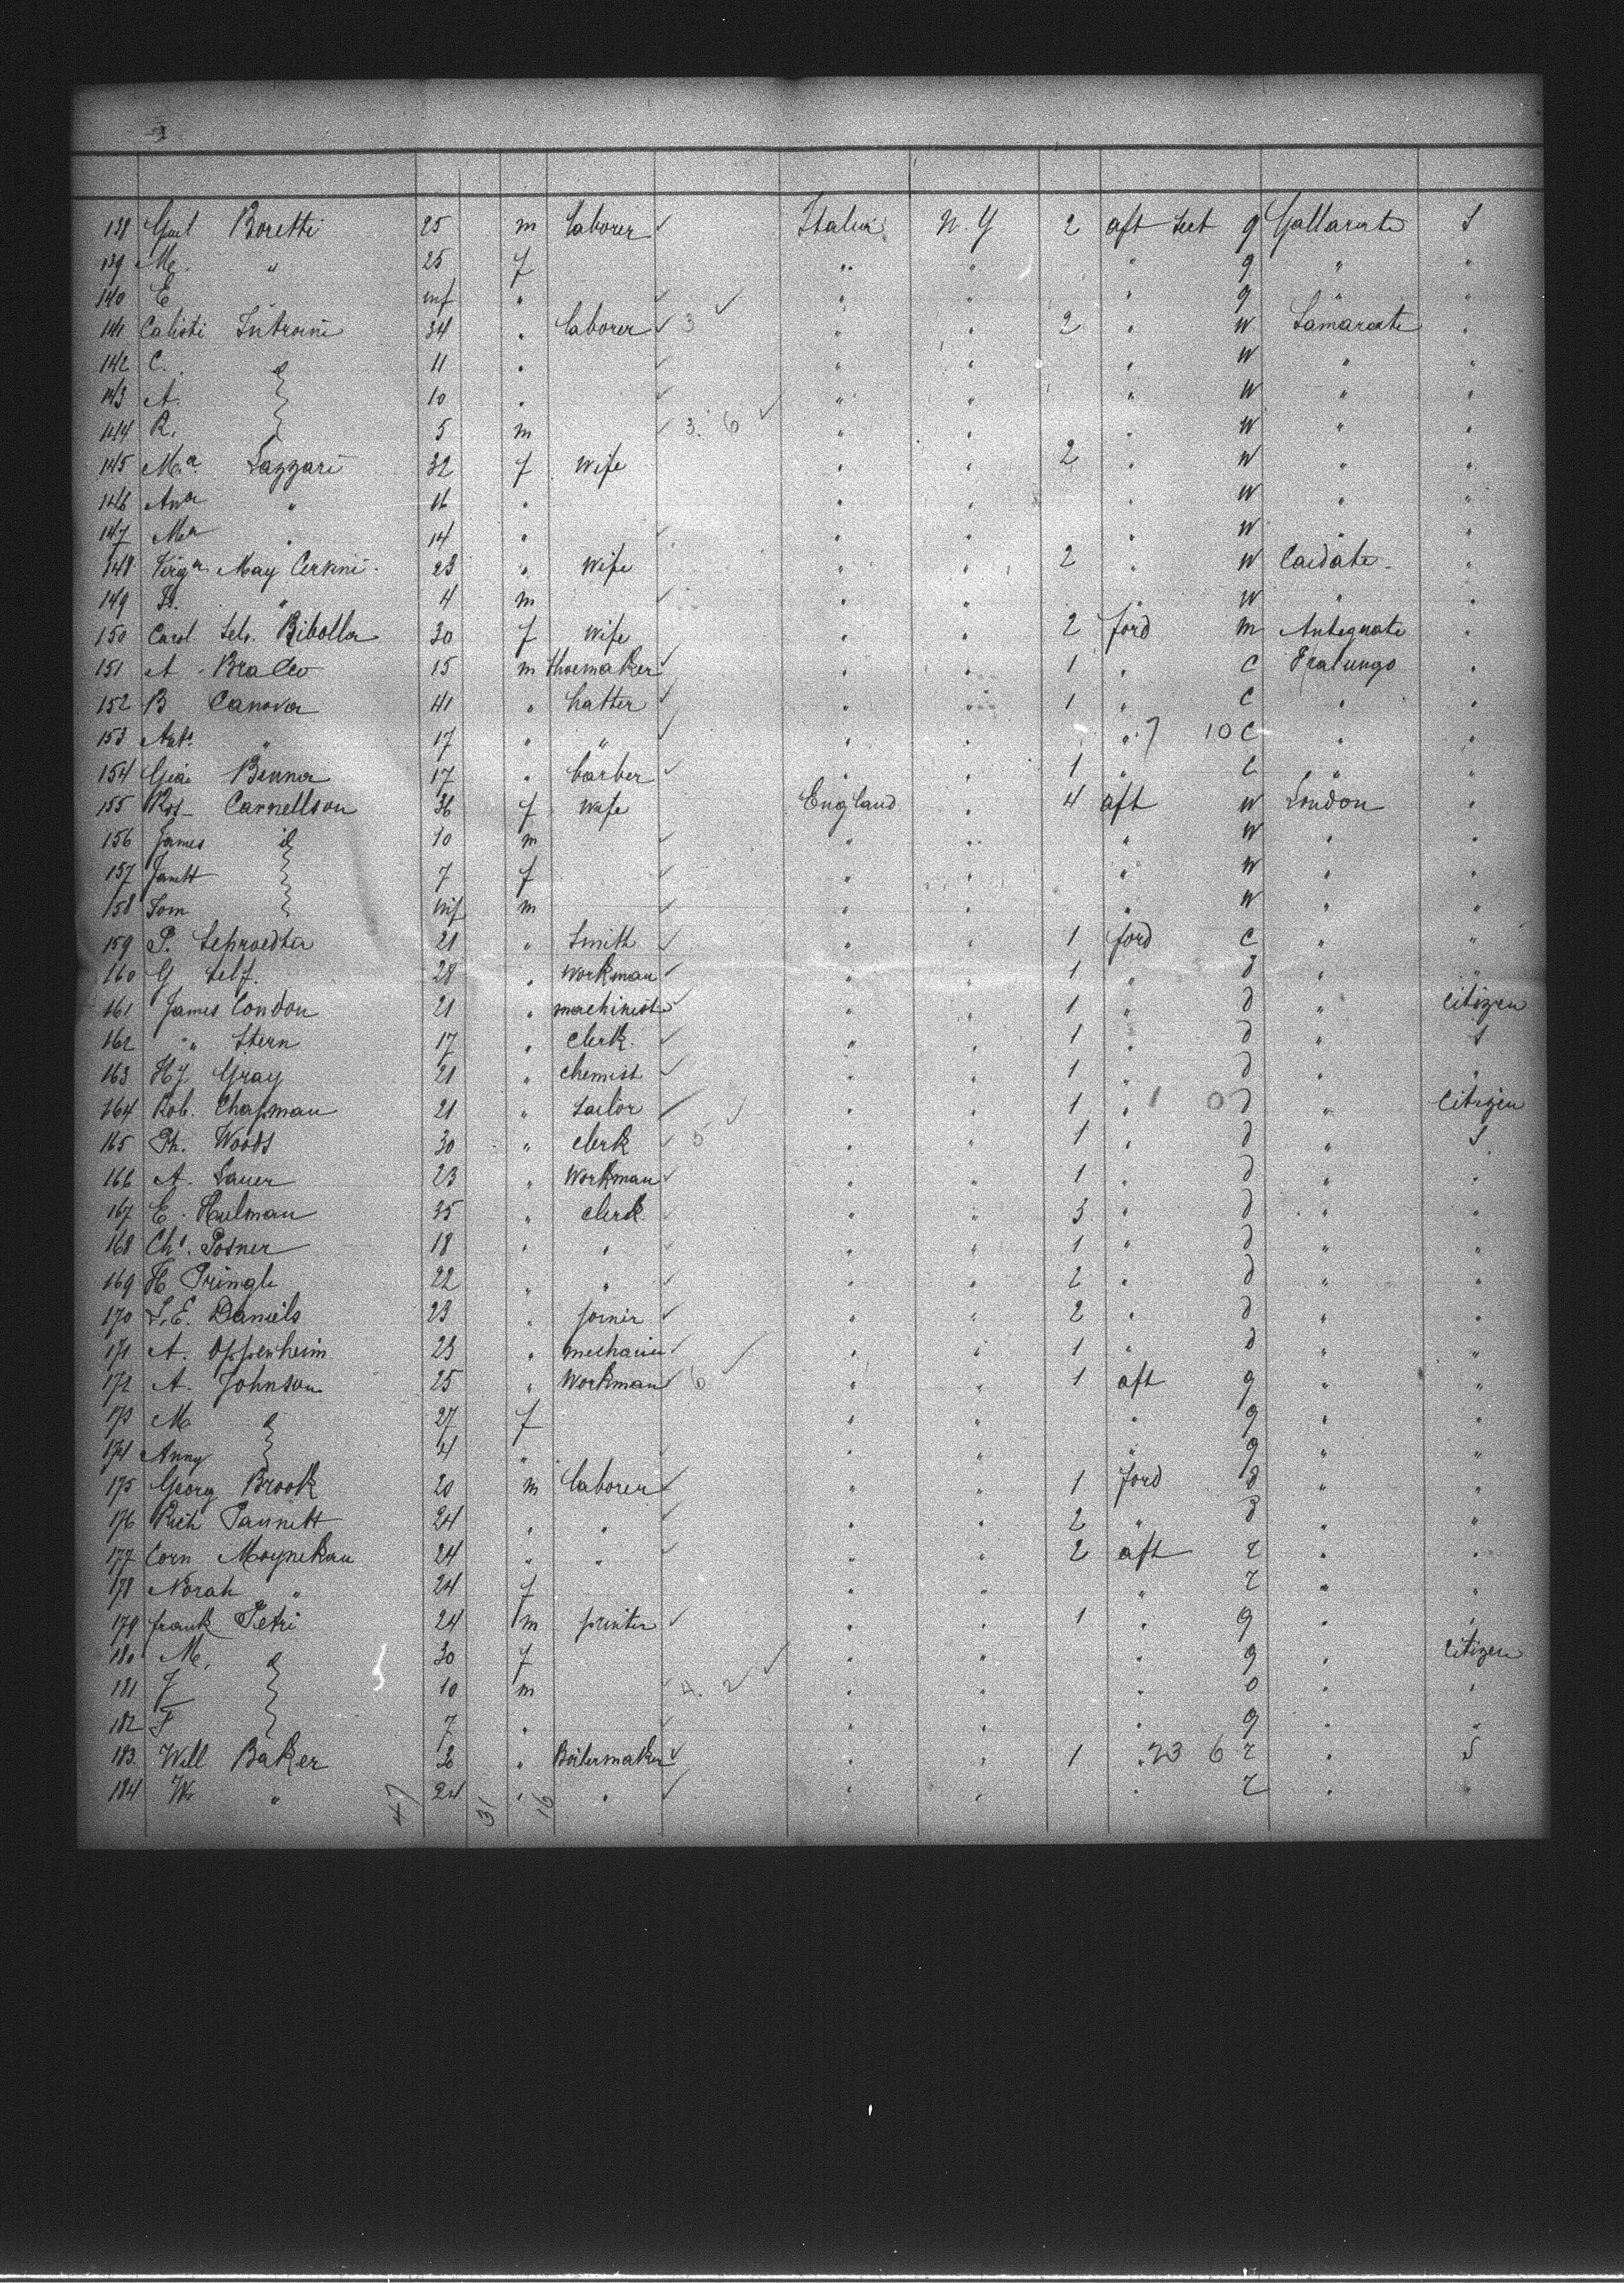 138 Gul Boretti 25 m laborer ✓ Italia N.Y 2 aft Sect g Gallarate S
139 M. " 25 f " " " g " "
140 E inf " ✓ " " " g " "
141 Calisti Introini 34 " laborer ✓ 3 " " 2 " W Samarate "
142 C. 11 " ✓ " " " W " "
143 A. 10 " ✓ " " " W " "
144 R. 5 m ✓ 3. 6 ✓ " " " W " "
145 M.a Lazzari 32 f wife " " 2 " W " "
146 Ana " 16 " " " " W " "
147 Ma " 14 " ✓ " " " W " "
148 Virg.a May Cervini 23 " wife " " 2 " W Caidate "
149 " 4 m ✓ " " " W " "
150 Carol Selv. Bibolla 30 f wife " " 2 ford m Antegnate "
151 A Braleo 15 m Shoemaker ✓ " " 1 " C Fralungo "
152 B Canova 41 " hatter ✓ " " 1 " C " "
153 Ant. " 17 " " ✓ " " " 7 10 C " "
154 Gia Benna 17 " barber ✓ " " 1 " C " "
155 Ros Carnellson 36 f wife England " 4 aft W London "
156 James d 10 m ✓ " " " W " "
157 Janett 7 f ✓ " " " W " "
158 Tom inf m ✓ " " " W " "
159 P. Schroedter 21 " Smith ✓ " " 1 ford C " "
160 G Self. 28 " Workman ✓ " " 1 " d " "
161 James Condon 21 " machinist ✓ " " 1 " d " Citizen
162 " Stern 17 " Clerk. ✓ " " 1 " d " S
163 HJ Gray 21 " Chemist ✓ " " 1 " d " "
164 Rob. Chapman 21 " Sailor ✓ " " 1 " 1 0 d " Citizen
165 Ph. Woods 30 " clerk ✓ 5 " " 1 " d " S
166 A. Lauer 23 " Workman ✓ " " 1 " d " "
167 E. Hulman 35 " clerk ✓ " " 3 " d " "
168 Chs. Posner 18 " " ✓ " " 1 " d " "
169 H Pringle 22 " " ✓ " " 2 " d " "
170 S.E. Daniels 23 " joiner ✓ " " 2 " d " "
171 A. Oppenheim 23 " mechanic ✓ " " 1 " d " "
172 A. Johnson 25 " Workman ✓ 6 " " 1 aft g " "
173 M 27 f " " " g " "
174 Anny 4 " ✓ " " " g " "
175 Georg Brook 20 m laborer ✓ " " 1 ford d " "
176 Rich Pannett 24 " " ✓ " " 2 " d " "
177 Corn Moynekan 24 " " ✓ " " 2 aft r " "
178 Norah " 24 f " " " r " "
179 frank Petri 24 m printer ✓ " " 1 " g " "
180 M. 30 f " " " g " Citizen
181 J 10 m ✓ 4. 2 ✓ " " " o " "
182 F 7 " ✓ " " " g " "
183. Will Baker " Boilermaker ✓ " " 1 " 23 6 r " S
184 Wr " 24 " " ✓ " " " r " "
47 31 16